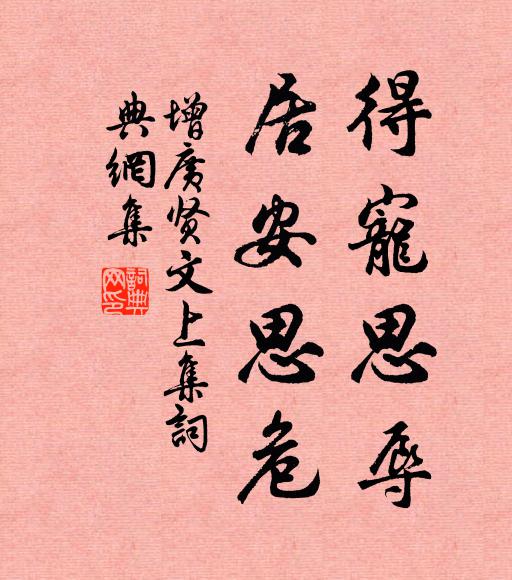 得寵思辱
居安思危
增廣贤文上集詞
典網集
詞典
网印